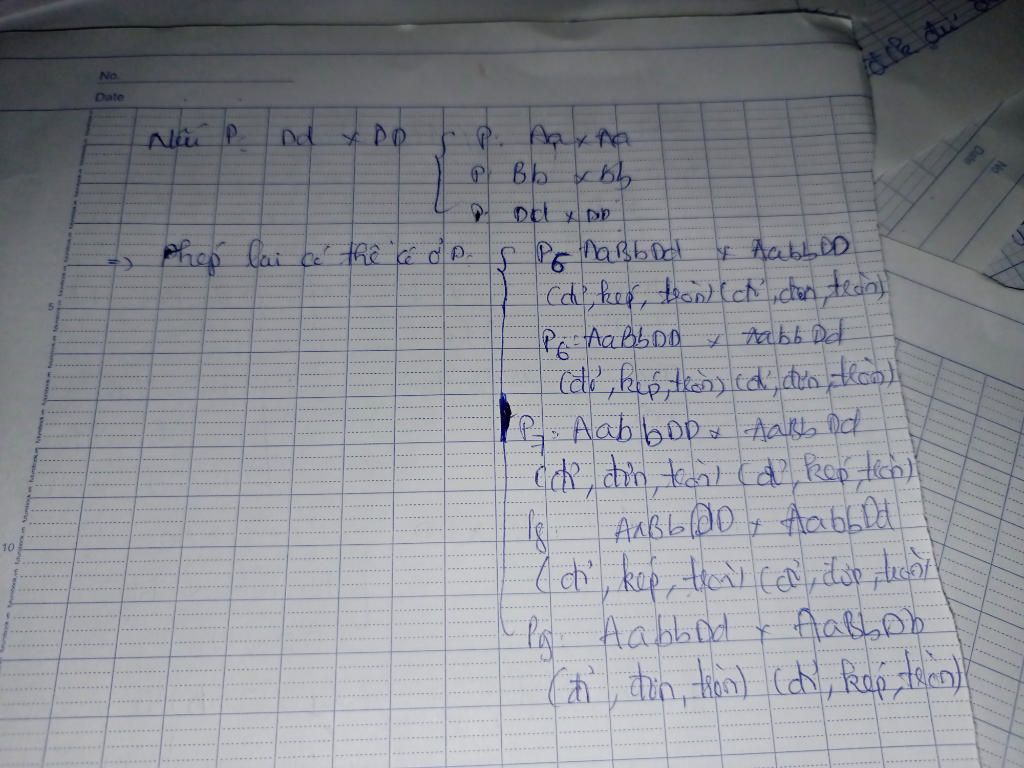 No.
Date
Nếu P: Dd x DD { P: Aa x Aa
P: Bb x Bb
P: Dd x DD
=> Phép lai có thể có ở P: { P5 AaBbDd x AabbDD
(đỏ, kép, tròn) (đỏ, đơn, tròn)
P6: AaBbDD x AabbDd
(đỏ, kép, tròn) (đỏ, đơn, tròn)
5
P7: AabbDD x AaBbDd
(đỏ, đơn, tròn) (đỏ, kép, tròn)
P8 AaBbDD x AabbDd
10
(đỏ, kép, tròn) (đỏ, đơn, tròn)
P9: AabbDd x AaBbDb
(đỏ, đơn, tròn) (đỏ, kép, tròn)
No
Date